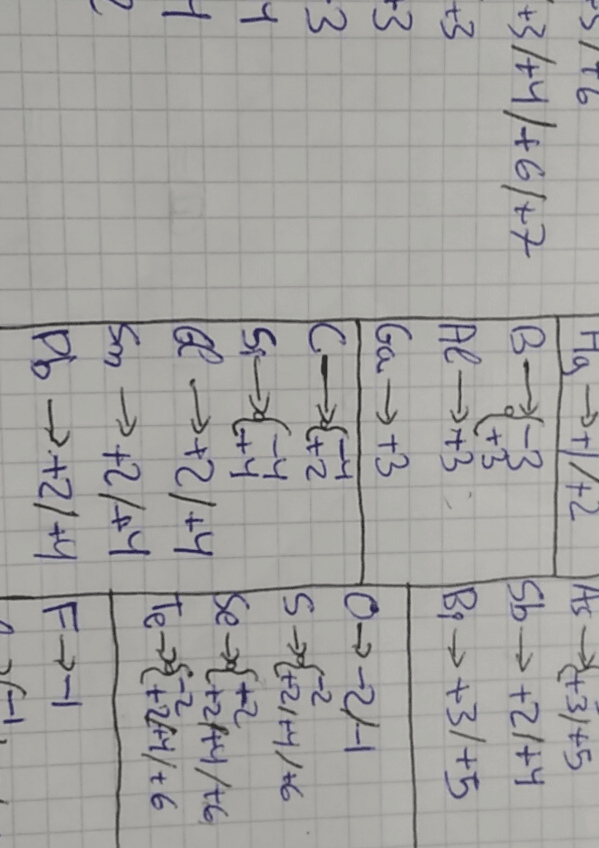 +3/+4/+6/+7
+3
+3
+3
Hg → +1/+2
B → { -3
+3
Al → +3
Ga → +3
C → { -4
+2
Si → { -4
+4
Ge → +2/+4
Sn → +2/+4
Pb → +2/+4
As → { +3/+5
Sb → +2/+4
Bi → +3/+5
O → -2/-1
S → { -2
+2/+4/+6
Se → { +2
+2/+4/+6
Te → { -2
+2/+4/+6
F → -1